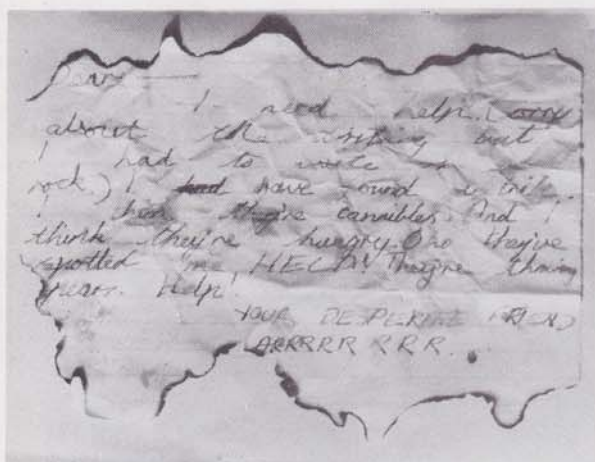 Danny
I need help. (orry
about the writing but
I had to write on a
rock.) I had have ound a trib
I think they're cannibles. And I
think they're hungry. O no they've
spotted me, HELP!! They're throwing
spears. Help!
YOUR DESPERATE FRIEND
ARRRRR R R R.